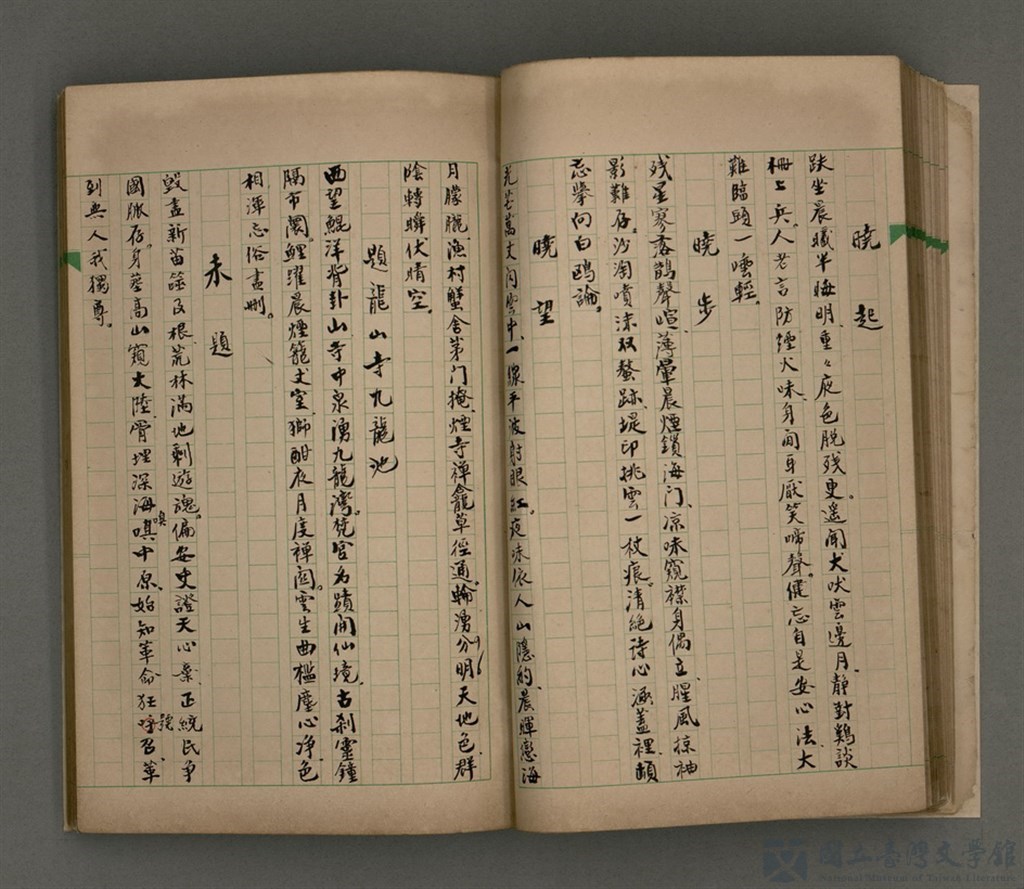 曉起
趺坐晨曦半晦明、重々夜色脱残更。遥聞犬吠雲邊月、静對鷄談
柵上兵。人若言防煙火味、身閒耳厭笑啼聲。健忘自是安心法、大
難臨頭一嚏輕。
曉步
残星寥落鵲聲喧、薄暈晨煙鎖海门、凉味窺襟身偶立、腥風掠袖
影難存。沙淘噴沫双螯跡、堤印挑雲一杖痕。清絶詩心涵蓋裡、頓
忘擧向白鷗論。
曉望
茫茫萬丈閃雲中、一線平波射眼红。夜味依人山隱約、晨暉戀海
月朦朧。漁村蟹舍茅门掩、煙寺禅龕草径通。輪湧分明天地色、群
陰轉瞬伏晴空。
題龍山寺九龍池
西望鯤洋背卦山、寺中泉湧九龍灣。梵宮名蹟開仙境、古刹靈鐘
隔市闤。鯉躍晨煙籠丈室、獅酣夜月度禅関。雲生曲檻塵心净、色
相渾忘俗盡刪。
未題
毀盡新苗並及根、荒林滿地剩遊魂。偏安史證天心棄、正統民争
國脈存。身葬高山窺大陸、骨埋深海嘆中原。始知革命狂呼名、革
到無人我獨尊。
嘆
號
國立臺灣文學館
National Museum of Taiwan Literature